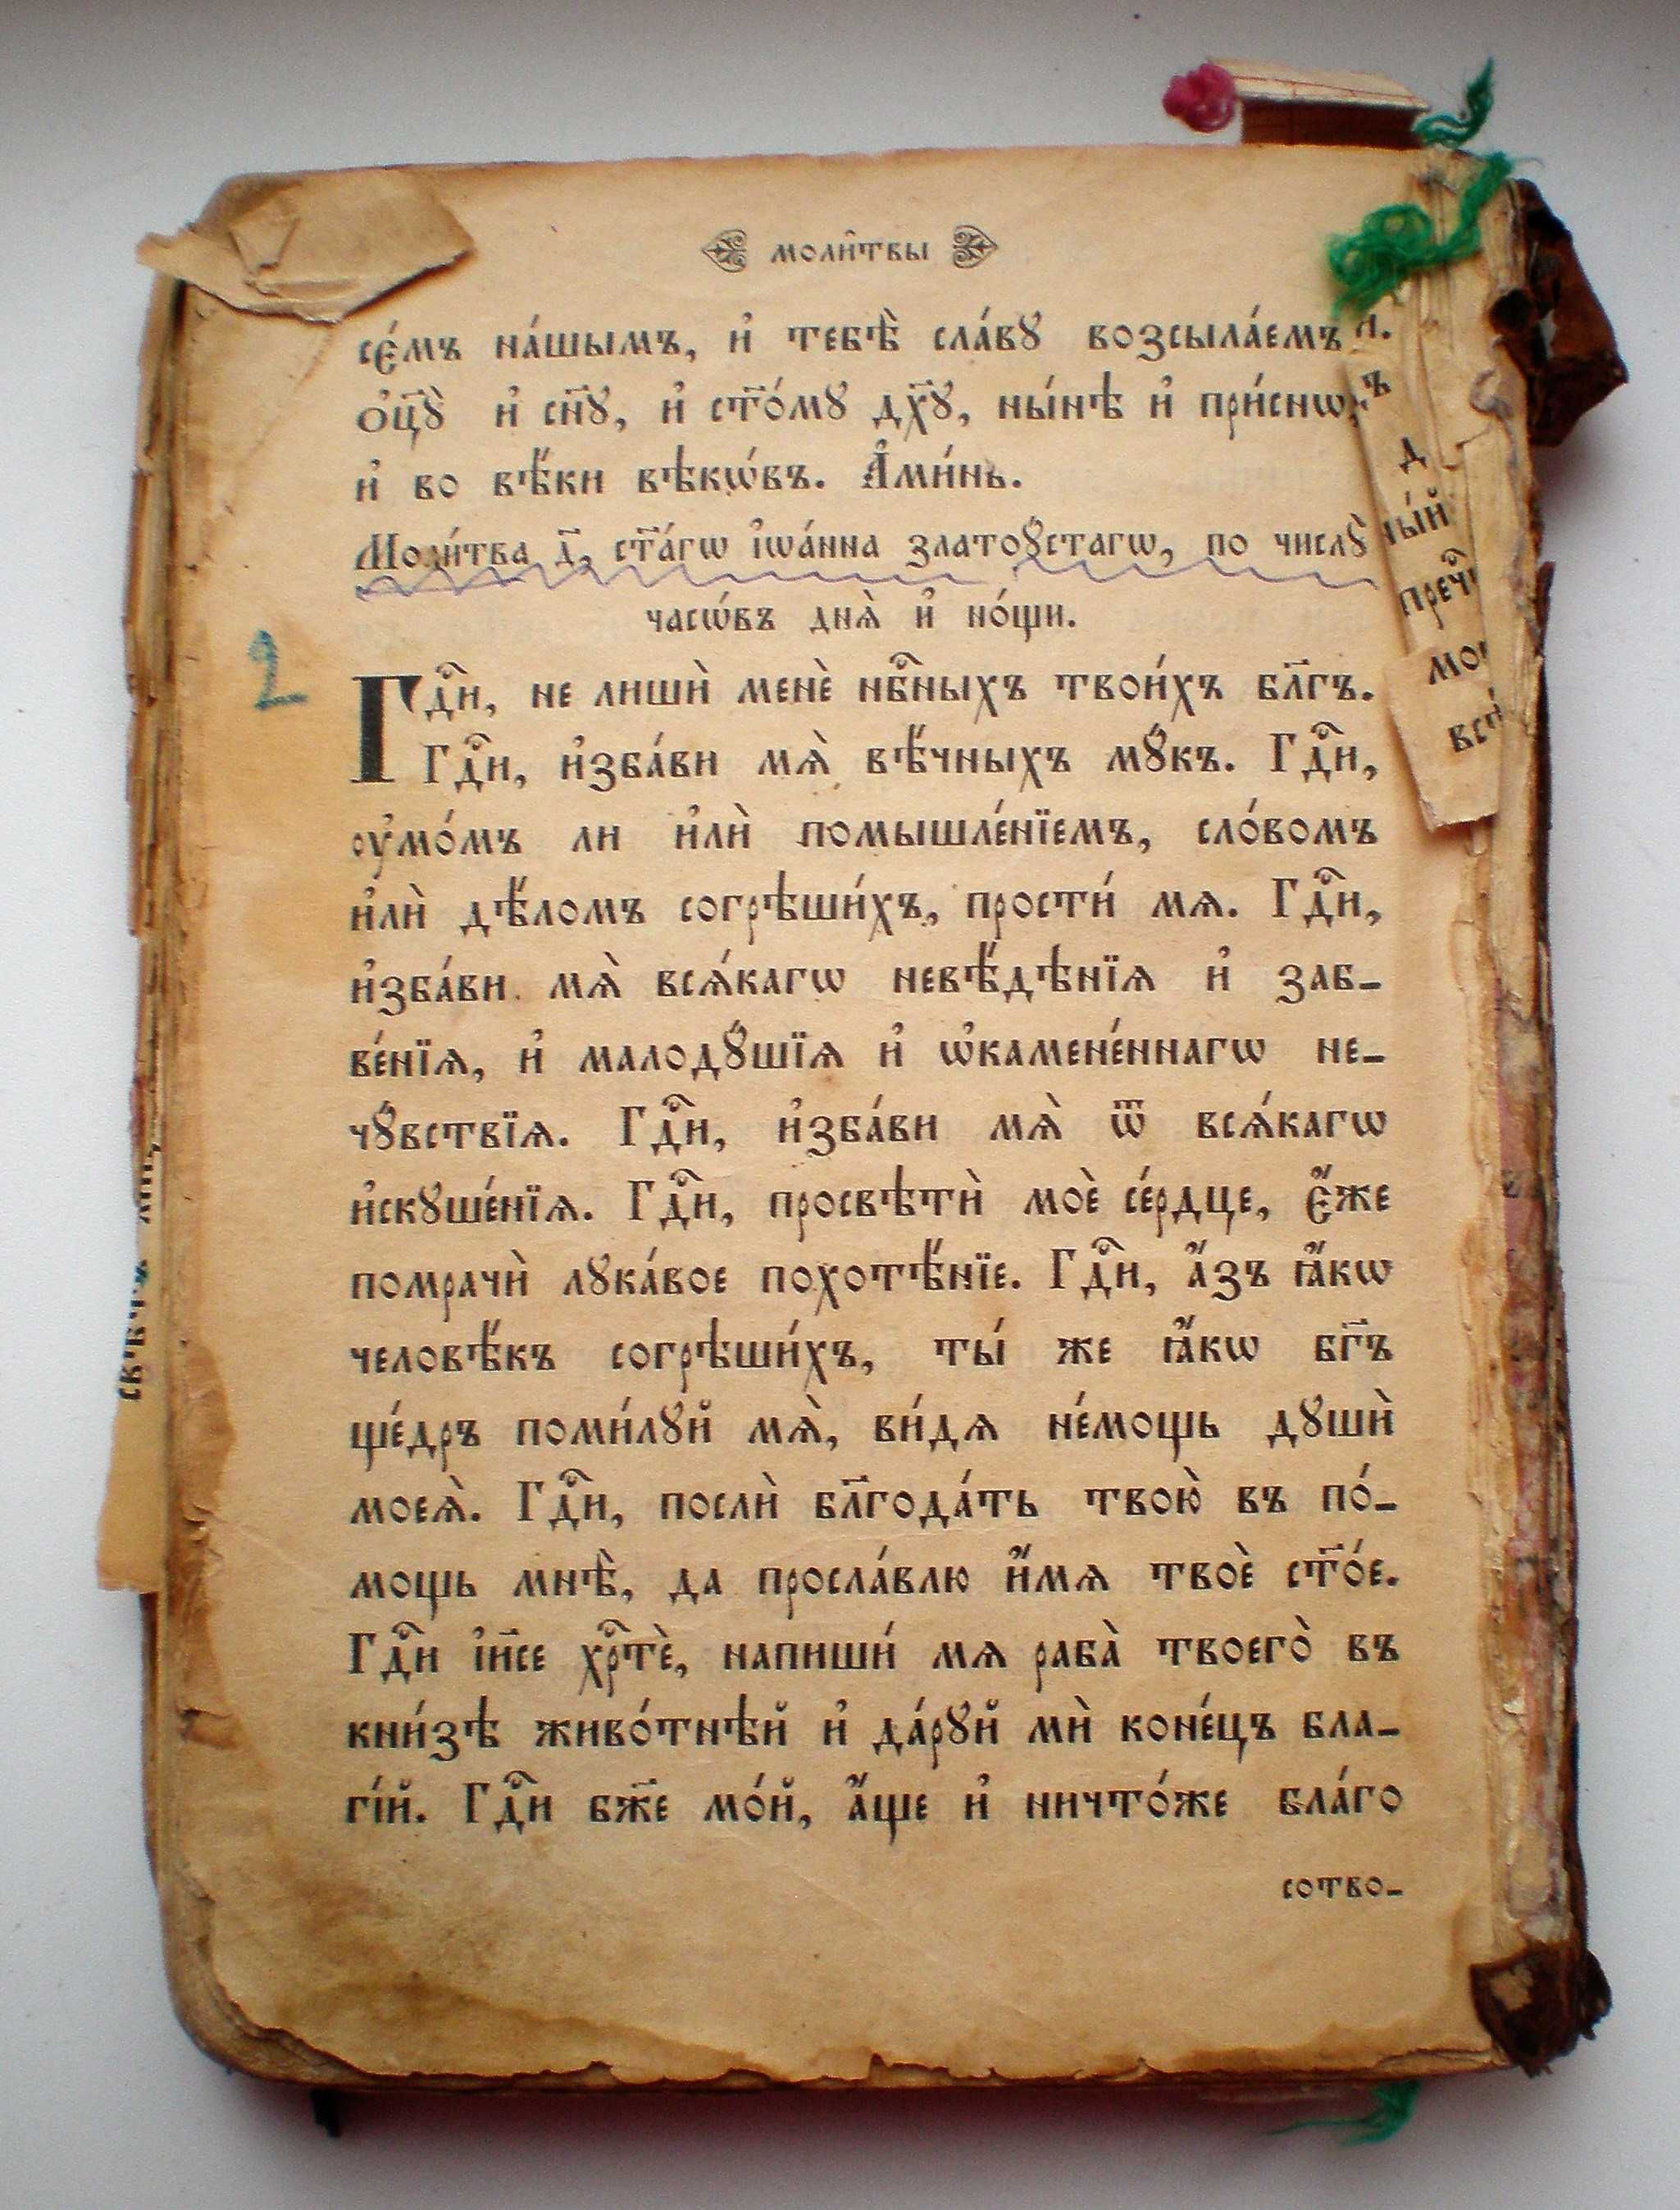 моли̑твы
се́мъ на́шымъ, и҆ тебѣ̀ сла́вꙋ возсыла́емъ
ѻ҆ц҃ꙋ̀ и҆ сн҃ꙋ, и҆ ст҃о́мꙋ дх҃ꙋ, ны́нѣ и҆ при́снѡ,
и҆ во вѣ́ки вѣкѡ́въ. А҆ми́нь.
Моли́тва д҃, ст҃а́гѡ і҆ѡа́нна златоꙋ́стагѡ, по числꙋ̀
часѡ́въ днѧ̀ и҆ но́щи.
2
Гдⷭ҇и, не лишѝ менѐ нбⷭ҇ныхъ твои́хъ бл҃гъ.
Гдⷭ҇и, и҆зба́ви мѧ̀ вѣ́чныхъ мꙋ́къ. Гдⷭ҇и,
ᲂу҆мо́мъ ли и҆лѝ помышле́нїемъ, сло́вомъ
и҆лѝ дѣ́ломъ согрѣши́хъ, прости́ мѧ. Гдⷭ҇и,
и҆зба́ви мѧ̀ всѧ́кагѡ невѣ́дѣнїѧ и҆ заб-
ве́нїѧ, и҆ малодꙋ́шїѧ и҆ ѡ҆камене́ннагѡ не-
чꙋ́вствїѧ. Гдⷭ҇и, и҆зба́ви мѧ̀ ѿ всѧ́кагѡ
и҆скꙋше́нїѧ. Гдⷭ҇и, просвѣтѝ моѐ се́рдце, є҆́же
помрачѝ лꙋка́вое похотѣ́нїе. Гдⷭ҇и, а҆́зъ ꙗ҆́кѡ
человѣ́къ согрѣши́хъ, ты́ же ꙗ҆́кѡ бг҃ъ
ще́дръ поми́лꙋй мѧ̀, ви́дѧ не́мощь дꙋшѝ
моеѧ̀. Гдⷭ҇и, послѝ бл҃года́ть твою̀ въ по́-
мощь мнѣ̀, да просла́влю и҆́мѧ твоѐ ст҃о́е.
Гдⷭ҇и і҆и҃се хрⷭ҇тѐ, напиши́ мѧ раба̀ твоего̀ въ
кни́зѣ живо́тнѣй и҆ да́рꙋй мѝ коне́цъ бла-
гі́й. Гдⷭ҇и бж҃е мо́й, а҆́ще и҆ ничто́же бла́го
сотво-